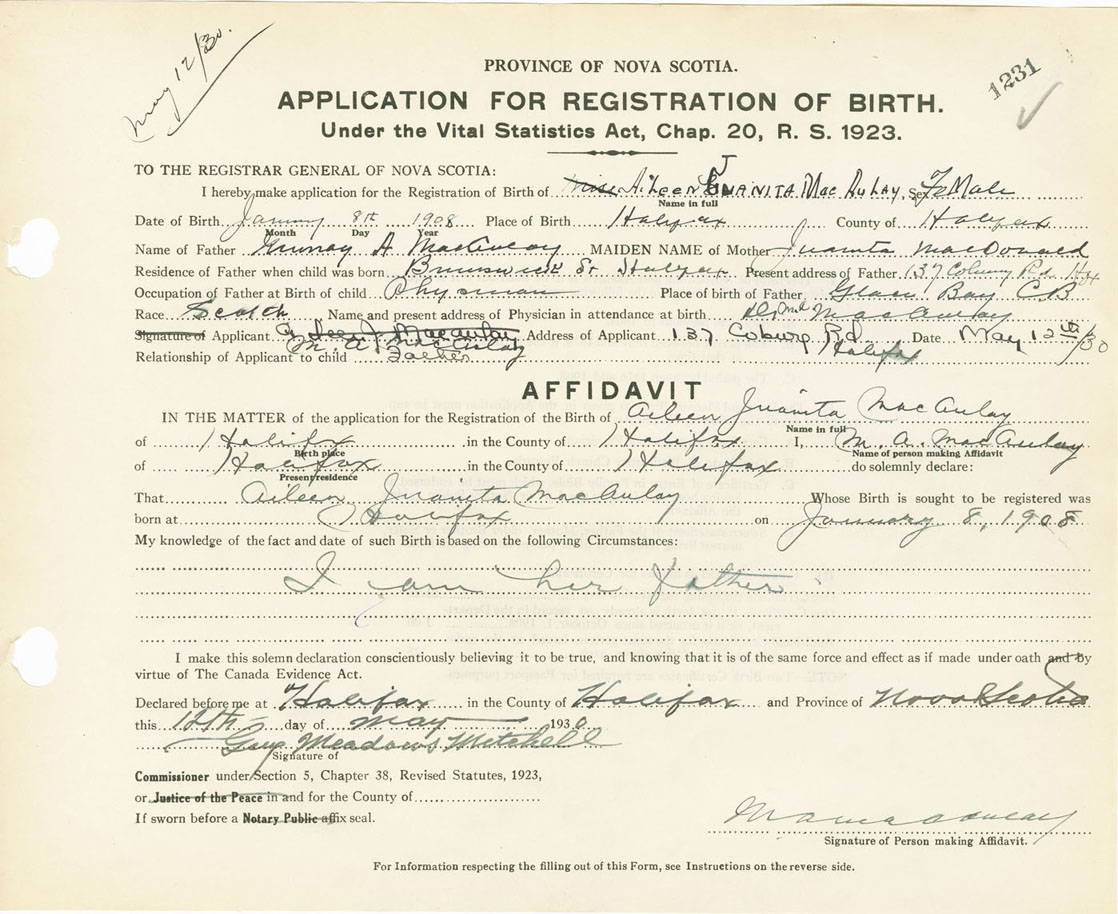 May 12/30.
1231
PROVINCE OF NOVA SCOTIA.
APPLICATION FOR REGISTRATION OF BIRTH.
Under the Vital Statistics Act, Chap. 20, R. S. 1923.
TO THE REGISTRAR GENERAL OF NOVA SCOTIA:
I hereby make application for the Registration of Birth of Miss Aileen JUANITA MacAulay, Sex FeMale
Name in full
Date of Birth January 8th 1908 Place of Birth Halifax County of Halifax
Month Day Year
Name of Father Murray A MacAulay MAIDEN NAME of Mother Juanita MacDonald
Residence of Father when child was born Brunswick St Halifax Present address of Father 137 Coburg Rd Hfx
Occupation of Father at Birth of child Physician Place of birth of Father Glace Bay CB
Race Scotch Name and present address of Physician in attendance at birth MacAulay
Signature of Applicant Aileen J. Macaulay Address of Applicant 137 Coburg Rd Date May 12th/30
M. A. MacAulay Halifax
Relationship of Applicant to child Father
AFFIDAVIT
IN THE MATTER of the application for the Registration of the Birth of Aileen Juanita MacAulay
Name in full
of Halifax in the County of Halifax I, M. A. MacAulay
Birth place Name of person making Affidavit
of Halifax in the County of Halifax do solemnly declare:
Present residence
That Aileen Juanita MacAulay Whose Birth is sought to be registered was
born at Halifax on January 8, 1908
My knowledge of the fact and date of such Birth is based on the following Circumstances:
I am her father
I make this solemn declaration conscientiously believing it to be true, and knowing that it is of the same force and effect as if made under oath and by
virtue of The Canada Evidence Act.
Declared before me at Halifax in the County of Halifax and Province of Nova Scotia
this 12th day of May 1930
Guy Meadows Mitchell
Signature of
Commissioner under Section 5, Chapter 38, Revised Statutes, 1923,
or Justice of the Peace in and for the County of
If sworn before a Notary Public affix seal.
M A MacAulay
Signature of Person making Affidavit.
For Information respecting the filling out of this Form, see Instructions on the reverse side.